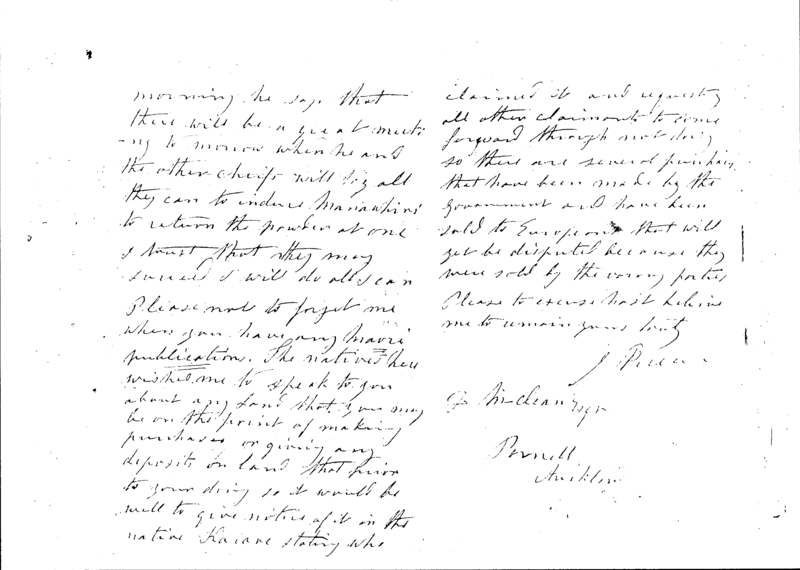 morning he says that
there will be a great meeti
-ng to morrow when he and
the other chiefs will try all
they can to induce
to return the powder at one
I trust that they may
succeed I will do all I can
Please not to forget me
when you have any Maori
publications. The natives here
wished me to speak to you
about any land that you may
be on the point of making
purchases or giving any
deposits on land that prior
to your doing so it would be
well to give notice of it in the
native Karere stating who
claimed it and requesting
all other claimants to come
forward through not doing
so there are several purchases
that have been made by the
Government and have been
sold to Europeans that will
yet be disputed because they
were sold by the wrong parties
Please to excuse hast believe
me to remain yours truly
J
McLean Esqr
Parnell
Auckland